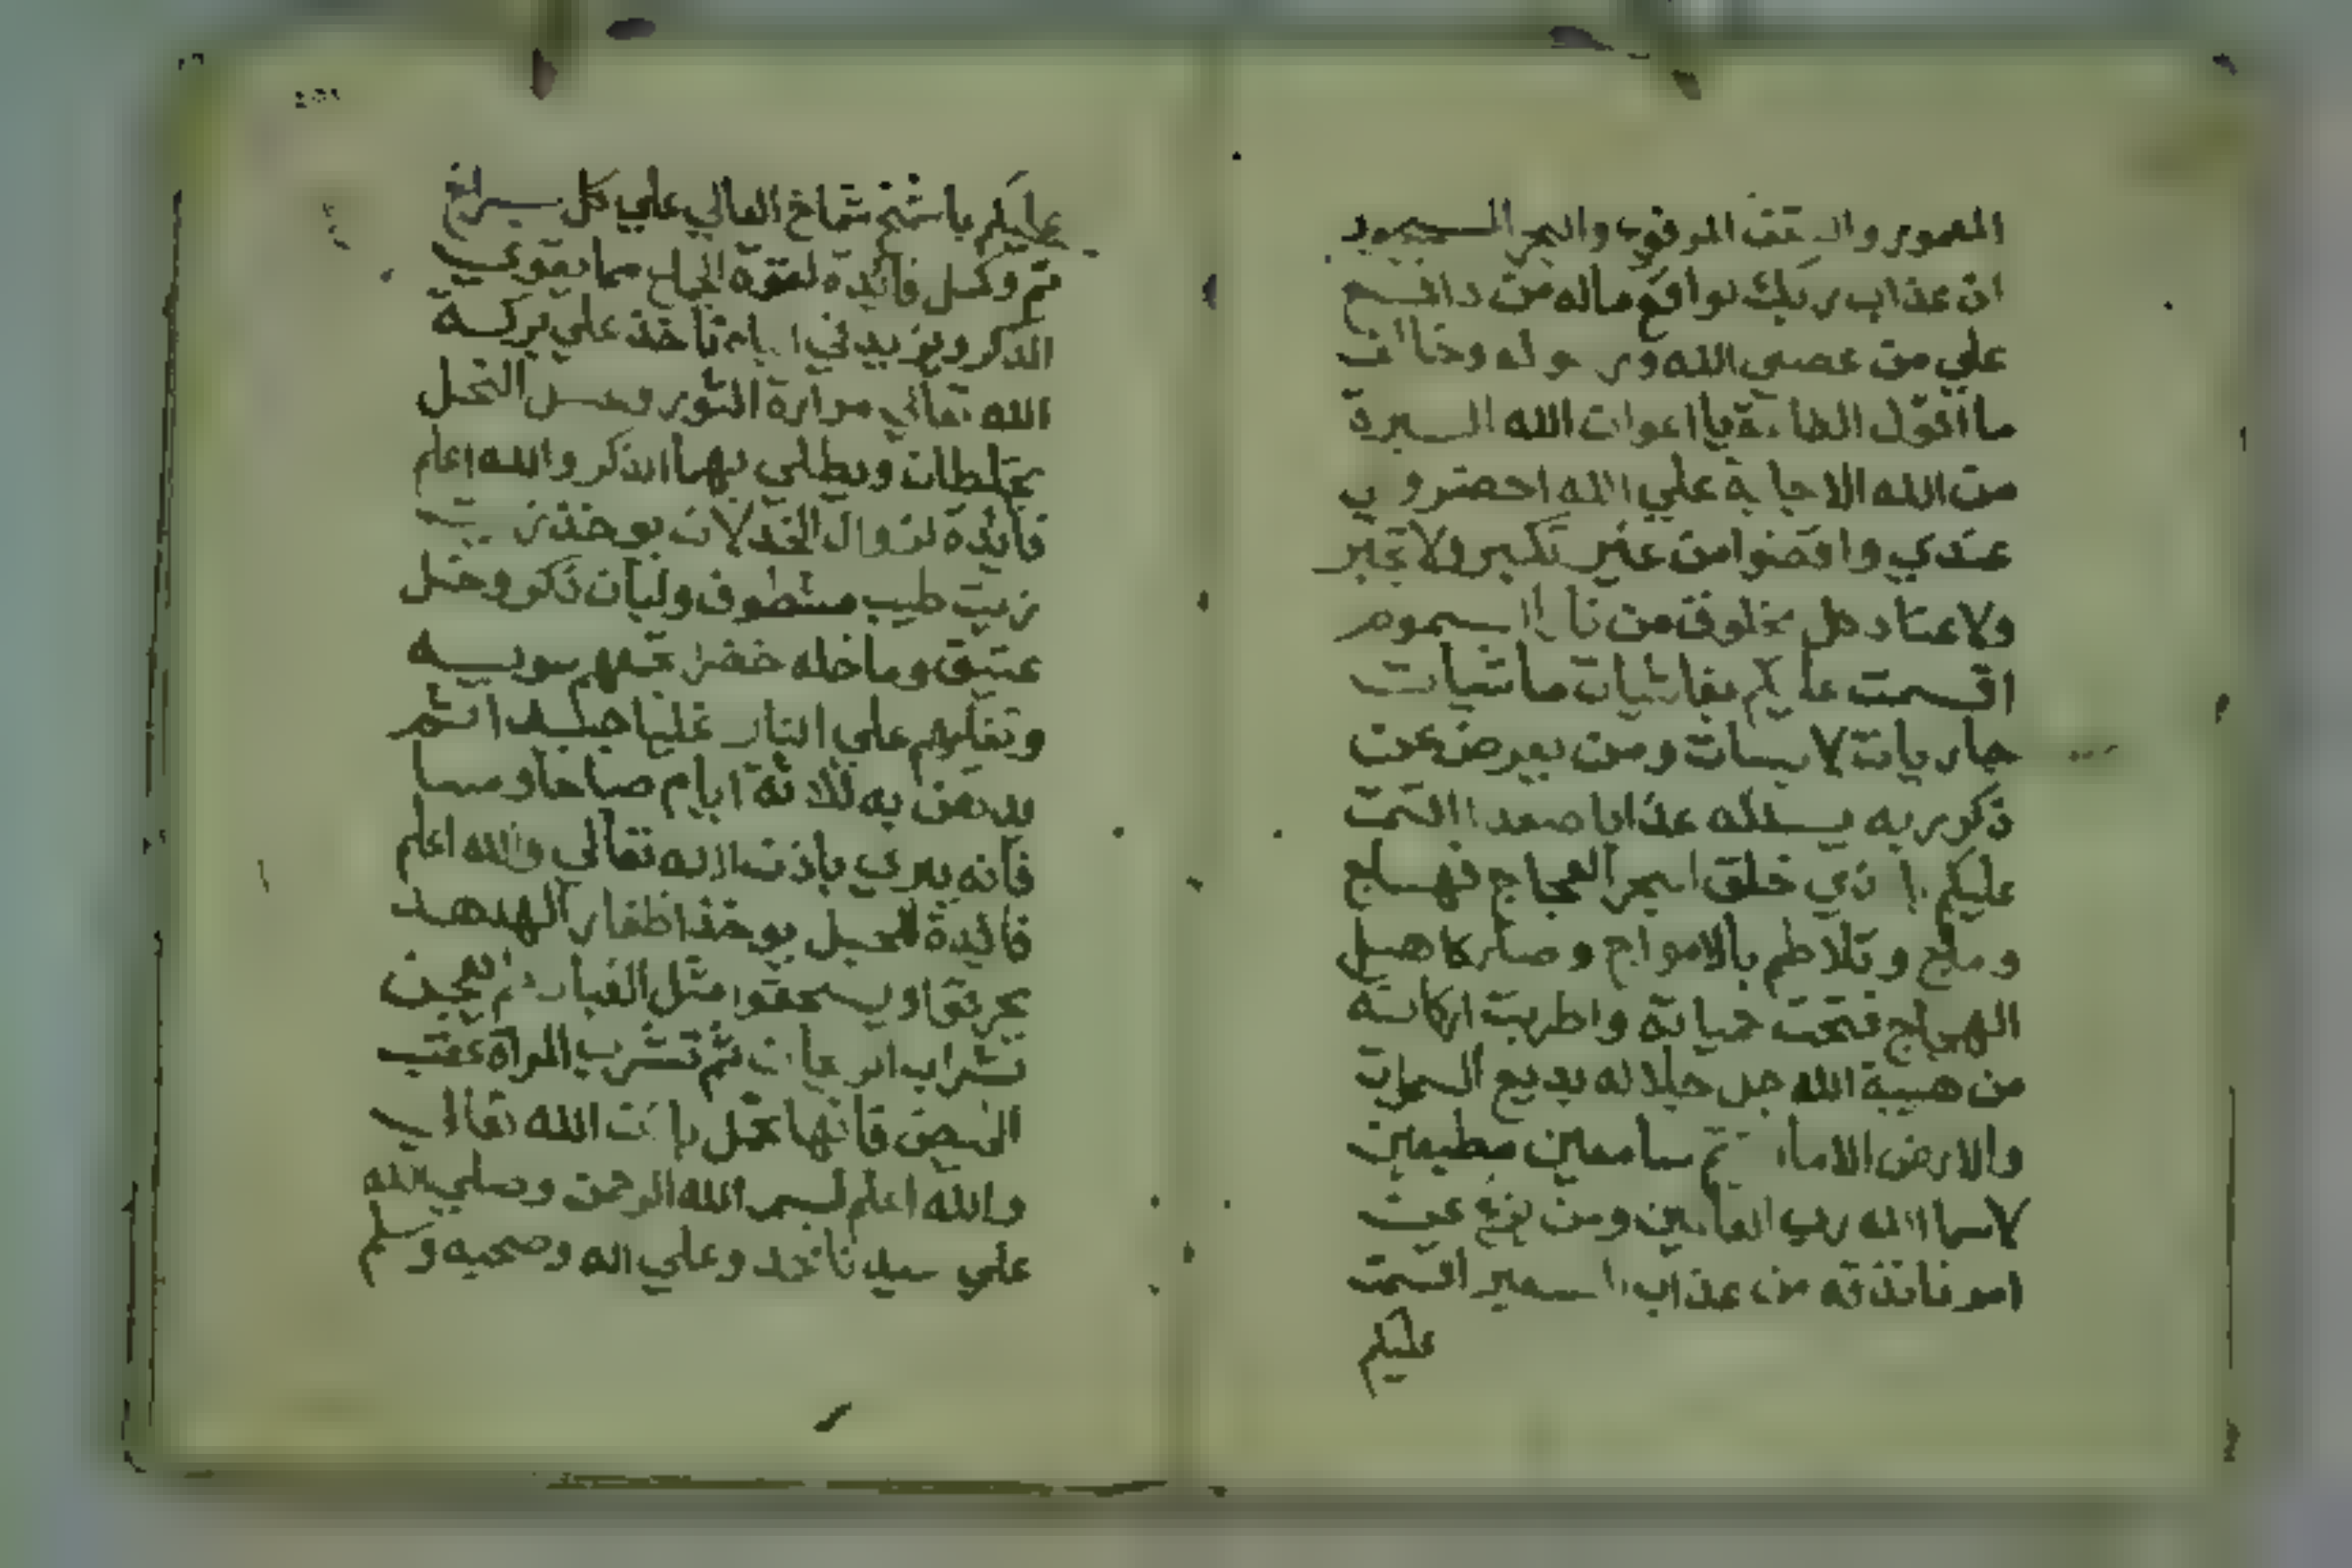 المعمور والسقف المرفوع والبحر المسجور
ان عذاب ربك لواقع ماله من دافع
علي من عصي الله ورسوله وخالف
ما اقول الطاعة يا اعوان الله السيرة
من الله الاجابة علي الله احضروا
عندي واقضوا من غير تكبر ولا تجبر
ولا عناد هل مخلوق من نار السموم
اقسمت عليكم بفاشيات ماشيات
جاريات لا يسات ومن يعرض عن
ذكر ربه يسلكه عذابا صعدا اقسمت
عليكم بالذي خلق البحر العجاج
وملح وتلاطم بالامواج وصار كاهل
الهياج فتحت حياته واطربت اركانه
من هيبة الله جل جلاله بديع السموات
والارض الا ما سامعين مطيعين
لاسما الله رب العالمين ومن يزغ عن
امرنا نذقه من عذاب السعير اقسمت
عليكم
عليكم باشمخ شماخ العالي علي كل
تم وكمل فائدة لقوة الجماع مما يقوي
الذكر ويزيد في تاخذ علي بركة
الله تعالي مرارة الثور وعسل النحل
يخلطان ويطلي بهما الذكر والله اعلم
فائدة لزوال الخذلان يوخذ
زيت طيب ولبان ذكر وخل
عتيق وما خله خضر
وتغليهم علي النار غليا جيدا ثم
يدهن به ثلاثة ايام صباحا ومسا
فانه يبري باذن الله تعالي والله اعلم
فائدة للحبل يوخذ اظفار الهدهد
يحرقوا ويسحقوا مثل الغبار ثم يعجن
بشراب ثم تشرب المراة عقب
الحيض فانها تحبل باذن الله تعالي
والله اعلم بسم الله الرحمن وصلي الله
علي سيدنا محمد وعلي اله وصحبه وسلم